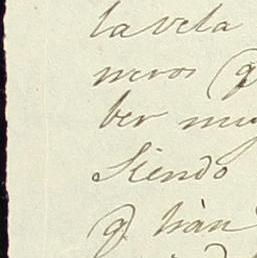 la vela
neros (q
ber muy
Siendo
q. hàn